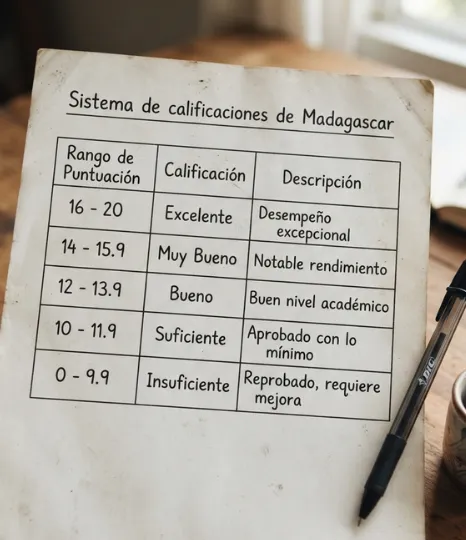 Sistema de calificaciones de Madagascar
Rango de
Puntuación
Calificación
Descripción
16 - 20
Excelente
Desempeño
excepcional
14 - 15.9
Muy Bueno
Notable rendimiento
12 - 13.9
Bueno
Buen nivel académico
10 - 11.9
Suficiente
Aprobado con lo
mínimo
0 - 9.9
Insuficiente
Reprobado, requiere
mejora
BIC